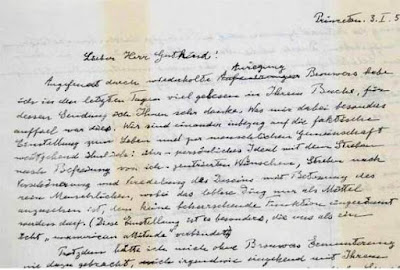 Princeton. 3. I. 5
Lieber Herr Gutkind!
Anregung
Angefeuert durch wiederholte Brouwers habe
ich in den letzten Tagen viel gelesen in Ihrem Buche, für
dessen Sendung ich Ihnen sehr danke. Was mir dabei besonders
auffiel war dies. Wir sind einander inbezug auf die faktische
Einstellung zum Leben und zur menschlichen Gemeinschaft
weitgehend ähnlich: persönliches Ideal mit dem Streben
nach Befreiung von ich-zentrierten Wünschen, Streben nach
Verschönerung und Veredelung des Daseins mit Betonung des
rein Menschlichen, wobei das leblose Ding nur als Mittel
anzusehen ist, dem keine beherrschende Funktion eingeräumt
werden darf. (Diese Einstellung ist es besonders, die uns als ein
echt „unamerican attitude" verbindet)
Trotzdem hätte ich mich ohne Brouwers Ermunterung
nie dazu gebracht, mich irgendwie eingehend mit Ihrem